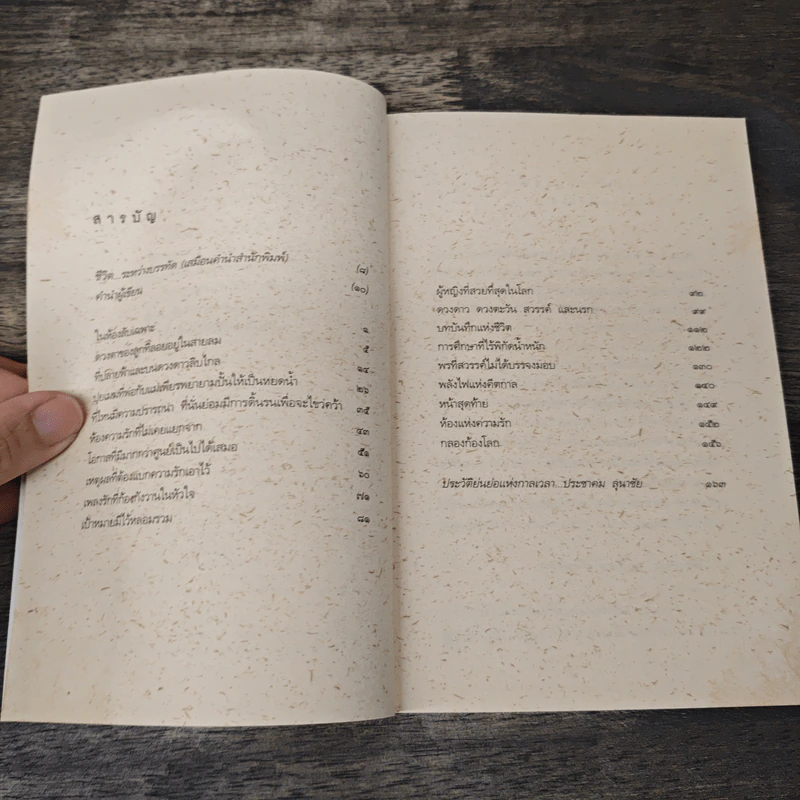 สารบัญ
ชีวิต...ระหว่างบรรทัด (เสมือนคำนำสำนักพิมพ์) (๘)
คำนำผู้เขียน (๑๐)
ในห้องสับเฉพาะ ๑
ดวงตาของลูกที่ลอยอยู่ในสายลม ๕
ที่ปลายฟ้าและบนดวงดาวลิบไกล ๑๔
ปุยเมฆที่พ่อกับแม่เพียรพยายามปั้นให้เป็นหยดน้ำ ๒๖
ที่ไหนมีความปรารถนา ที่นั่นย่อมมีการดิ้นรนเพื่อจะไขว่คว้า ๓๕
ห้องความรักที่ไม่เคยแยกจาก ๔๓
โอกาสที่มีมากกว่าศูนย์เป็นไปได้เสมอ ๕๑
เหตุผลที่ต้องแบกความรักเอาไว้ ๖๐
เพลงรักที่ก้องกังวานในหัวใจ ๗๑
เป้าหมายมีไว้หลอมรวม ๘๑
ผู้หญิงที่สวยที่สุดในโลก ๙๒
ดวงดาว ดวงตะวัน สวรรค์ และนรก ๙๙
บทบันทึกแห่งชีวิต ๑๑๒
การศึกษาที่ไร้พิกัดน้ำหนัก ๑๒๒
พรที่สวรรค์ไม่ได้บรรจงมอบ ๑๓๐
พลังไฟแห่งคีตกาล ๑๔๐
หน้าสุดท้าย ๑๔๙
ห้องแห่งความรัก ๑๕๒
กลองก้องโลก ๑๕๖
ประวัติย่นย่อแห่งกาลเวลา...ประชาคม ลุนาชัย ๑๖๓